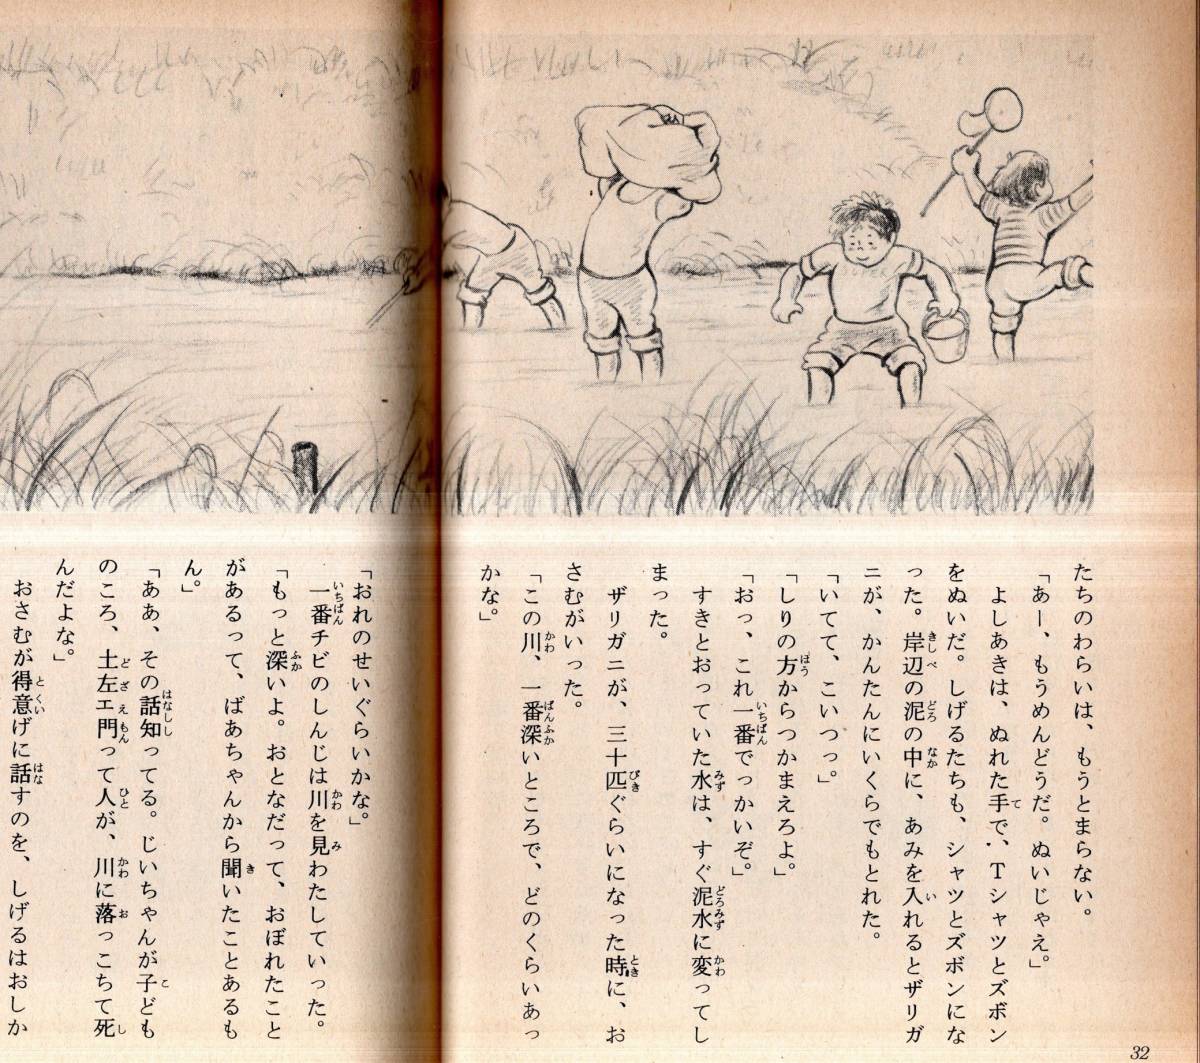 たちのわらいは、もうとまらない。
「あー、もうめんどうだ。ぬいじゃえ。」
よしあきは、ぬれた手で、Tシャツとズボン
をぬいだ。しげるたちも、シャツとズボンにな
った。岸辺の泥の中に、あみを入れるとザリガ
ニが、かんたんにいくらでもとれた。
「いてて、こいつっ。」
「しりの方からつかまえろよ。」
「おっ、これ一番でっかいぞ。」
すきとおっていた水は、すぐ泥水に変ってし
まった。
ザリガニが、三十匹ぐらいになった時に、お
さむがいった。
「この川、一番深いところで、どのくらいあっ
かな。」
「おれのせいぐらいかな。」
一番チビのしんじは川を見わたしていった。
「もっと深いよ。おとなだって、おぼれたこと
があるって、ばあちゃんから聞いたことあるも
ん。」
「ああ、その話知ってる。じいちゃんが子ども
のころ、土左エ門って人が、川に落っこちて死
んだよな。」
おさむが得意げに話すのを、しげるはおしか
32